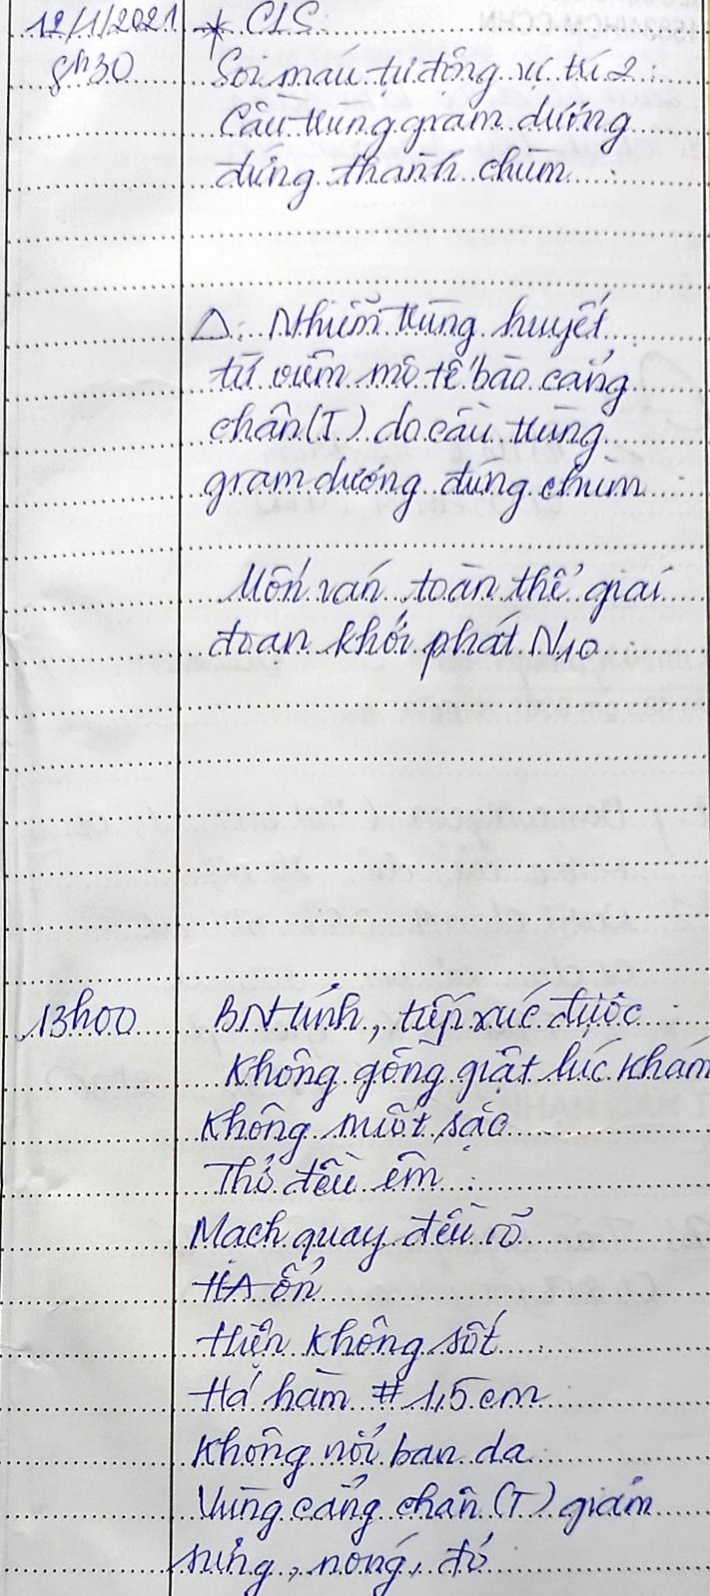 12/1/2021 * CLS:
8h30 Soi máu tự động vị trí 2:
Cầu trùng gram dương
đứng thành chùm
Δ: Nhiễm trùng huyết
từ viêm mô tế bào cẳng
chân (T) do cầu trùng
gram dương đứng chùm
Uốn ván toàn thể giai
đoạn khởi phát N10
13h00 BN tỉnh, tiếp xúc được
Không gồng giật lúc khám
Không nuốt sặc
Thở đều êm
Mạch quay đều rõ
HA ổn
Hiện không sốt
Há hàm # 1,5cm
Không nổi ban da
Vùng cẳng chân (T) giảm
sưng, nóng, đỏ